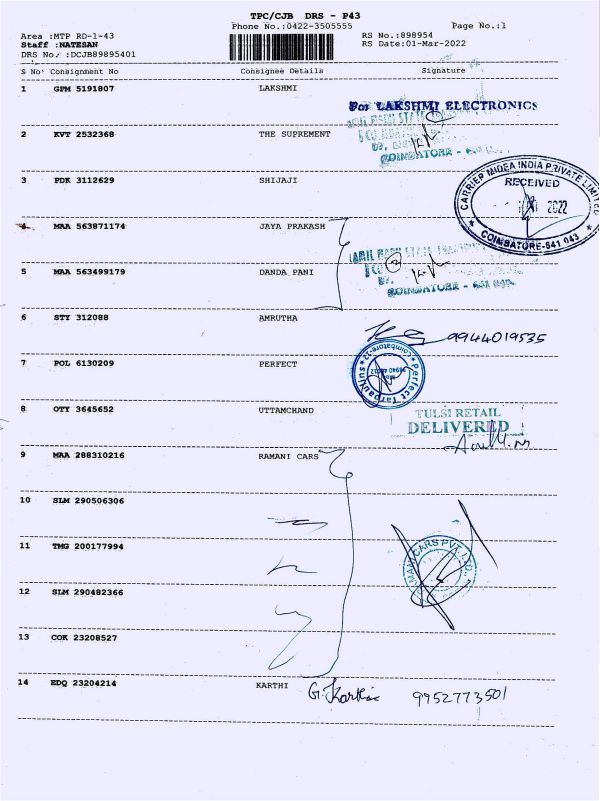 TPC/CJB DRS - P43
Phone No.:0422-3505555 Page No.:1
Area :MTP RD-1-43 RS No.:898954
Staff :NATESAN RS Date:01-Mar-2022
DRS No.:DCJB89895401
S No. Consignment No Consignee Details Signature
1 GPM 5191807 LAKSHMI
For LAKSHMI ELECTRONICS
2 KVT 2532368 THE SUPREMENT
COIMBATORE - 641
3 PDK 3112629 SHIJAJI
CARRIER MIDEA INDIA PRIVATE LIMITED
RECEIVED
2022
COIMBATORE-641 043
4 MAA 563871174 JAYA PRAKASH
TAMIL NADU STATE
5 MAA 563499179 DANDA PANI
COIMBATORE - 641
6 STY 312088 AMRUTHA
9944019535
7 POL 6130209 PERFECT
Perfect Tarpaulins
coimbatore-12
8 OTY 3645652 UTTAMCHAND
TULSI RETAIL
DELIVERED
9 MAA 288310216 RAMANI CARS
10 SLM 290506306
11 TMG 200177994
CARS PVT. LTD.
12 SLM 290482366
13 COK 23208527
14 EDQ 23204214 KARTHI G. Karthic 9952773501